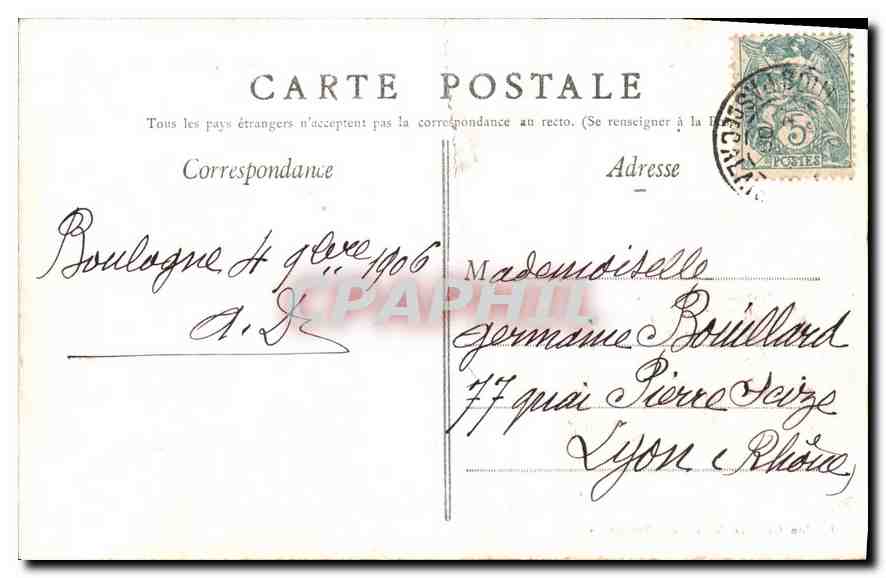 CARTE POSTALE
Tous les pays étrangers n'acceptent pas la correspondance au recto. (Se renseigner à la
Correspondance
Adresse
5
POSTES
Boulogne 4 9bre 1906
A. D.
Mademoiselle
Germaine Bouillard
77 quai Pierre Scize
Lyon (Rhône)
CPAPHIL